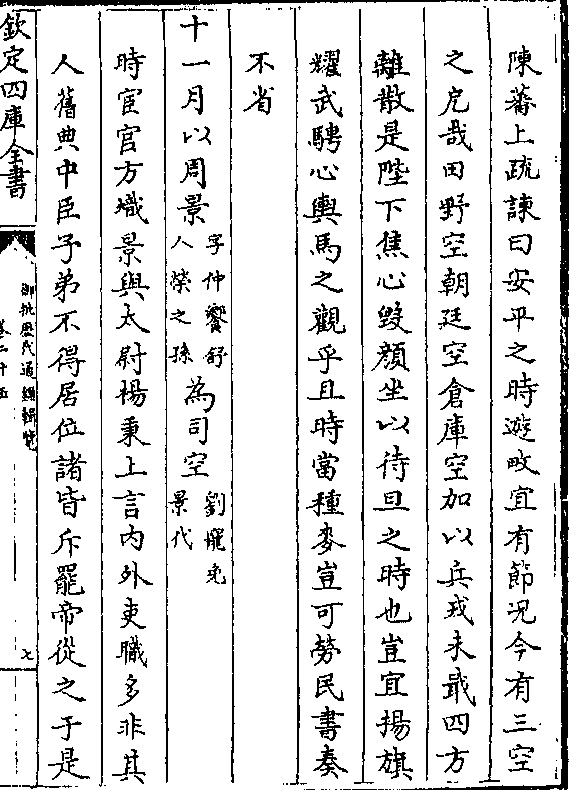 陳蕃上疏諫曰安平之時遊畋宜有節况今有三空
之戹哉田野空朝廷空倉庫空加以兵戎未戢四方
離散是陛下焦心毁顔坐以待旦之時也豈宜揚旗
耀武騁心輿馬之觀乎且時當種麥豈可勞民書奏
不省
十一月以周景字仲饗舒人榮之孫為司空劉寵免景代
時宦官方熾景與太尉楊秉上言内外吏職多非其
人舊典中臣子弟不得居位諸皆斥罷帝從之于是
欽定四庫全書
御批歷代通鑑輯覽
卷二十五
七